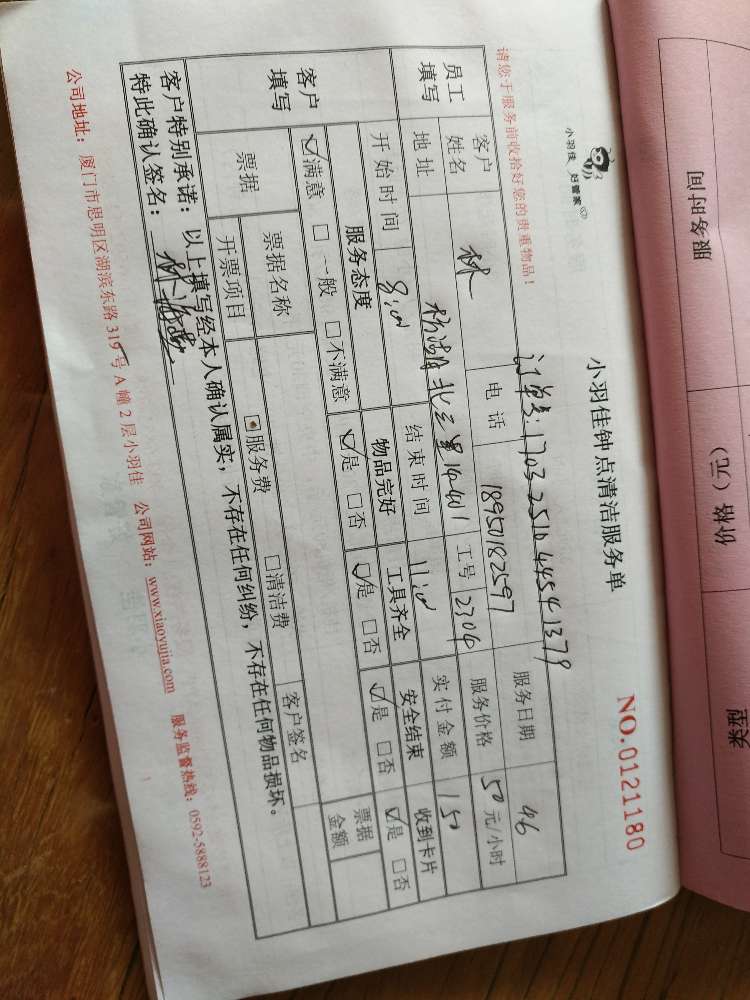 小羽佳 好管家
小羽佳钟点清洁服务单
NO.0121180
请您于服务前收拾好您的贵重物品！
订单号:1703251044541379
员工填写
客户姓名 林 电话 18950182597 服务日期 4.6
地址 北三里14-401 工号 2304 服务价格 50元/小时
开始时间 8:00 结束时间 11:00 实付金额 150
客户填写
服务态度 物品完好 工具齐全 安全结束 收到卡片
☑满意 □一般 □不满意 ☑是 □否 ☑是 □否 ☑是 □否 ☑是 □否
票据 票据名称 客户签名 票据金额
开票项目 ☑服务费 □清洁费
客户特别承诺：以上填写经本人确认属实，不存在任何纠纷，不存在任何物品损坏。
特此确认签名：林
公司地址：厦门市思明区湖滨东路319号A幢2层小羽佳 公司网站：www.xiaoyujia.com 服务监督热线：0592-5888123
服务时间
价格（元）
类型